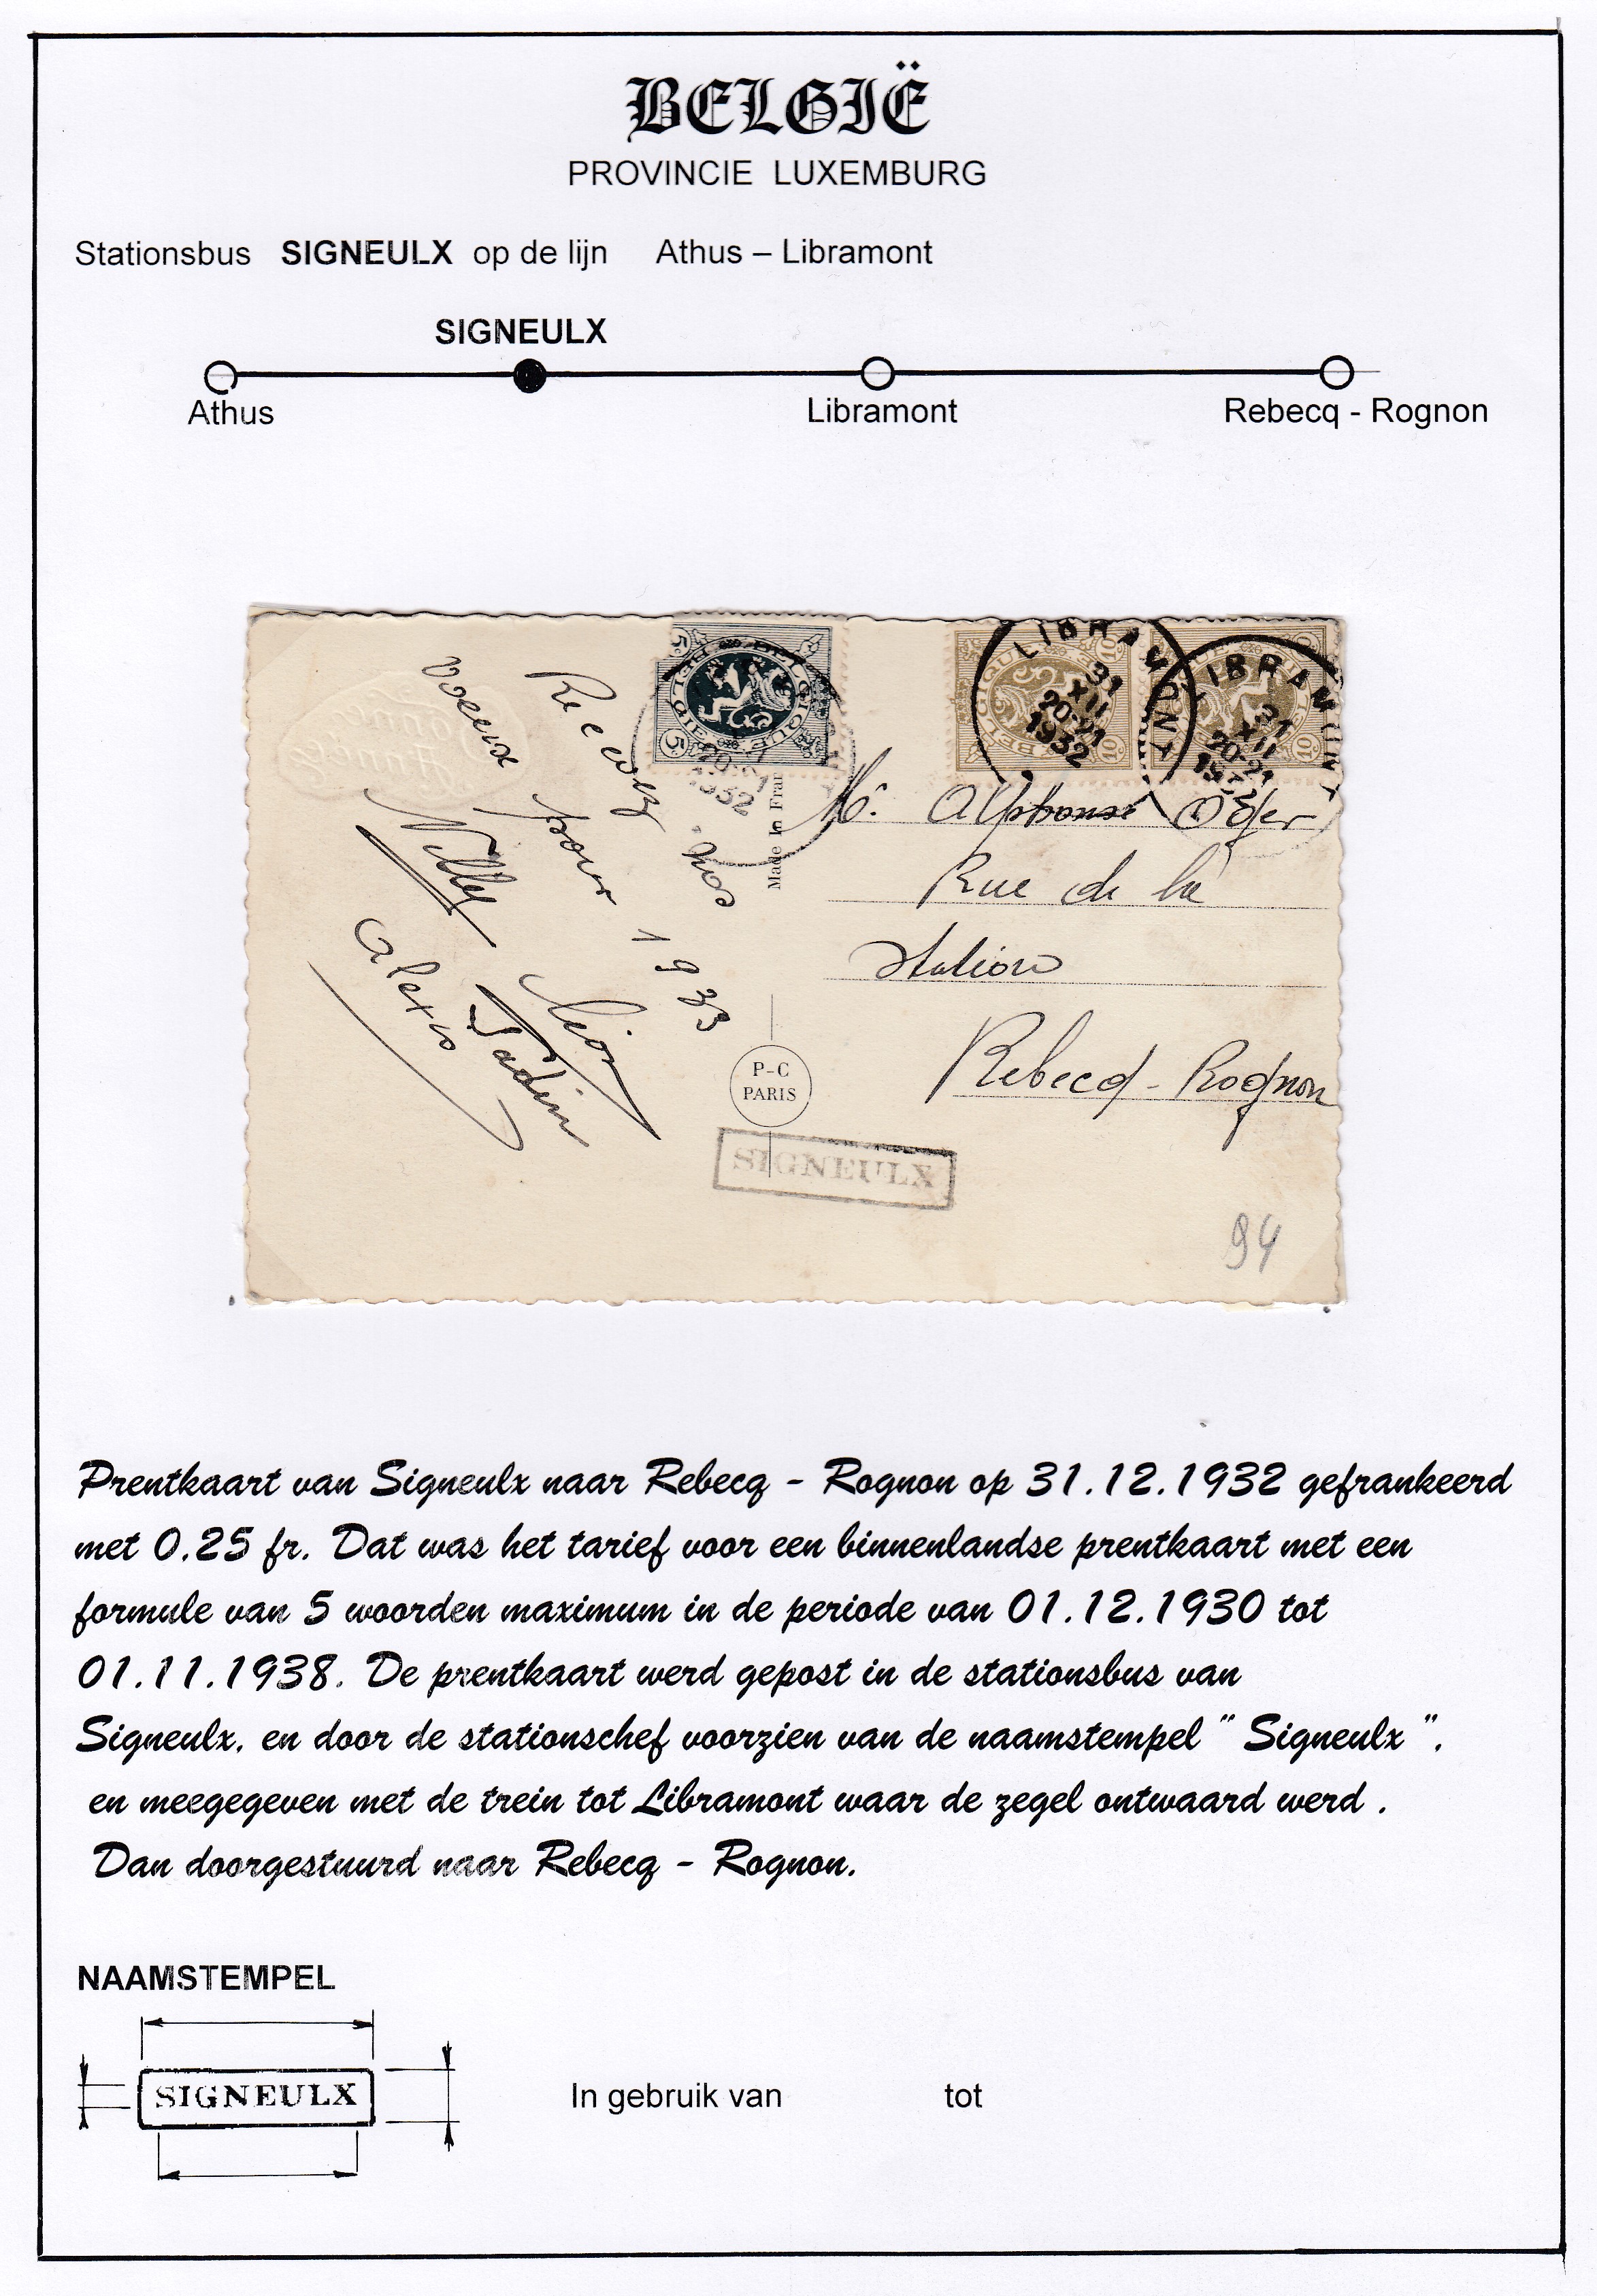 BELGIË
PROVINCIE LUXEMBURG
Stationsbus SIGNEULX op de lijn Athus – Libramont
SIGNEULX
Athus
Libramont
Rebecq - Rognon
Recevez nos
voeux pour 1933
Willy Léon
Alexis Jadin
5
5
10
10
10
LIBRAMONT
31
XII
20-21
1932
LIBRAMONT
31
XII
20-21
1932
Made in Fran
Mr. Alphonse Oger
Rue de la
Station
Rebecq - Rognon
P-C
PARIS
SIGNEULX
94
Prentkaart van Signeulx naar Rebecq - Rognon op 31.12.1932 gefrankeerd
met 0.25 fr. Dat was het tarief voor een binnenlandse prentkaart met een
formule van 5 woorden maximum in de periode van 01.12.1930 tot
01.11.1938. De prentkaart werd gepost in de stationsbus van
Signeulx, en door de stationschef voorzien van de naamstempel " Signeulx ",
en meegegeven met de trein tot Libramont waar de zegel ontwaard werd .
Dan doorgestuurd naar Rebecq - Rognon.
NAAMSTEMPEL
SIGNEULX
In gebruik van tot